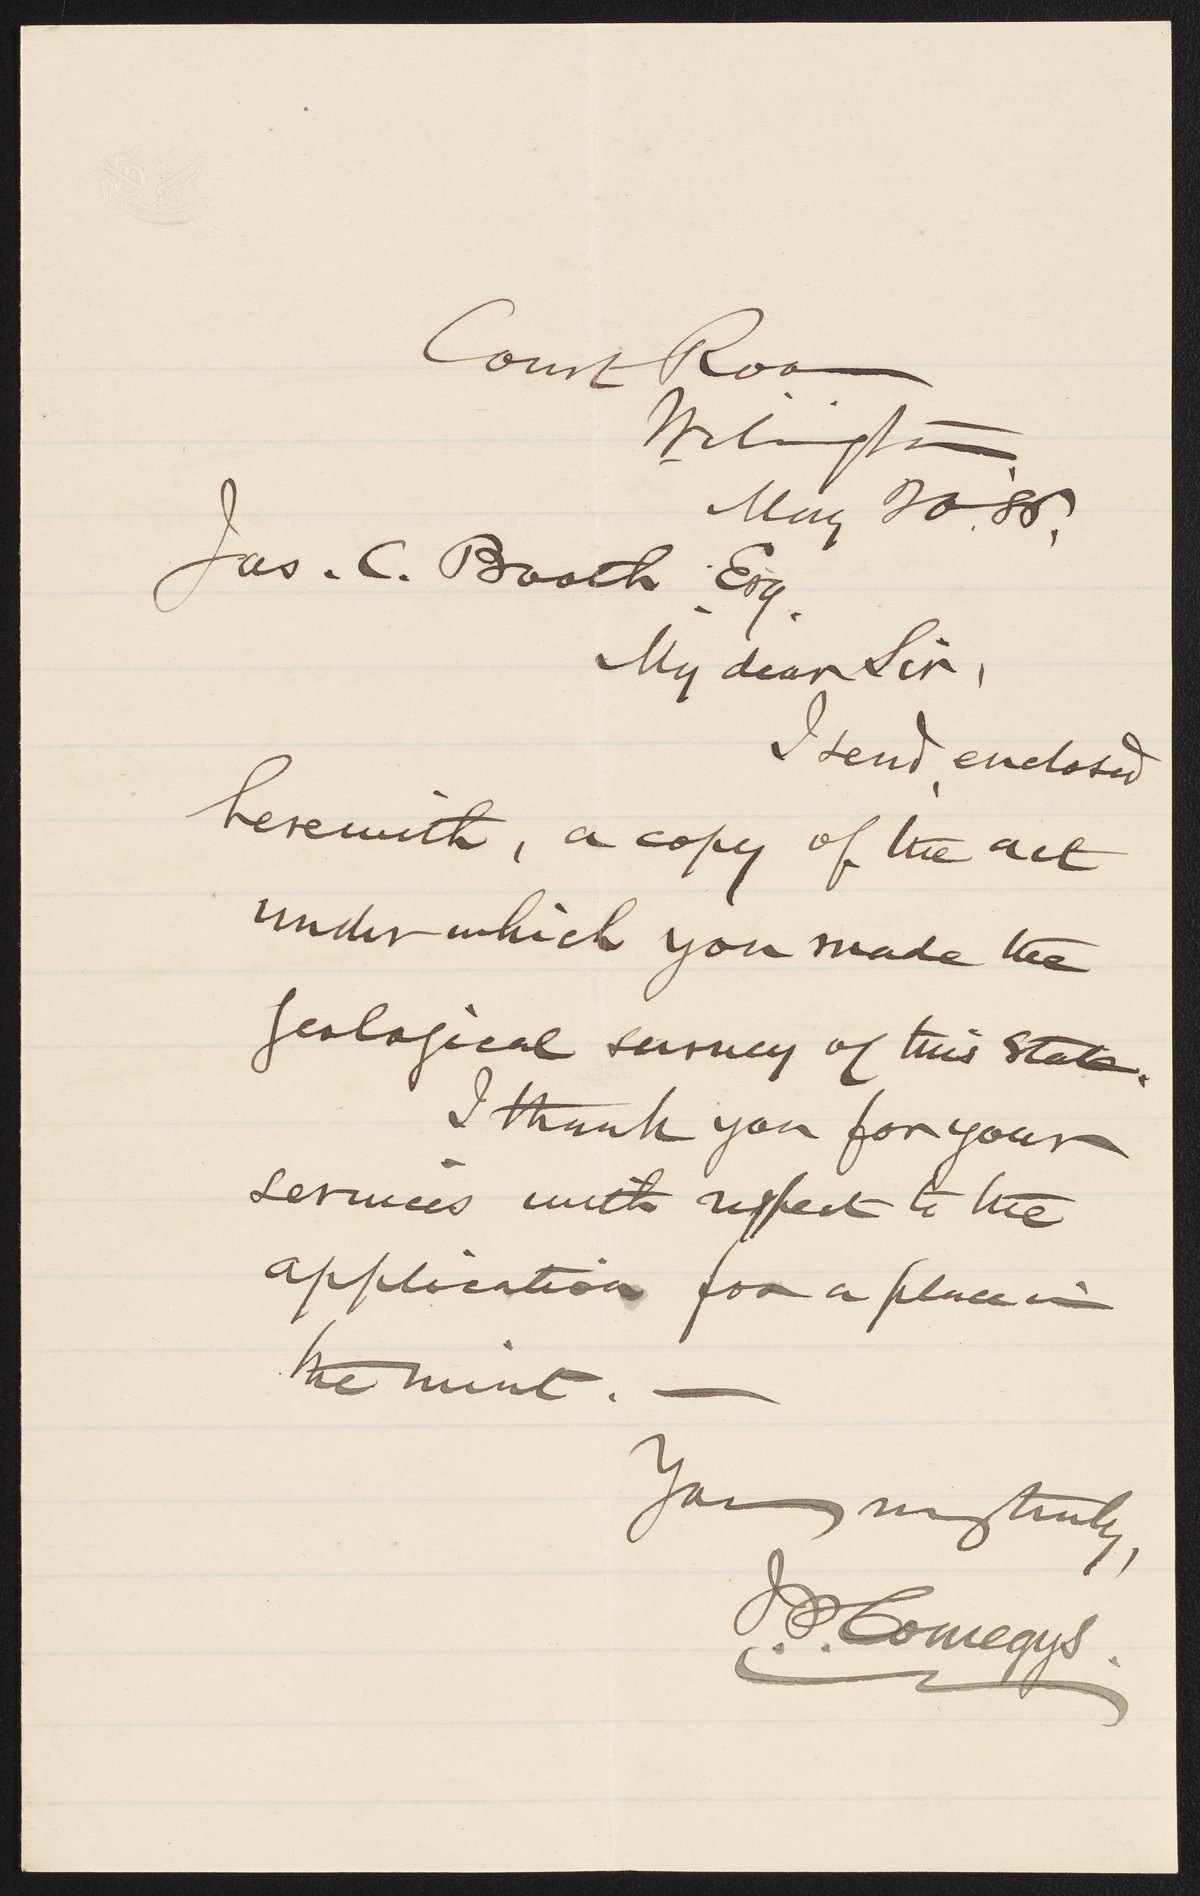 Court Room
Wilmington
May 20. '85,
Jas. C. Booth Esq.
My dear Sir,
I send, enclosed
herewith, a copy of the act
under which you made the
geological survey of this State.
I thank you for your
services with respect to the
application for a place in
the mint. —
Yours very truly,
J. P. Comegys.